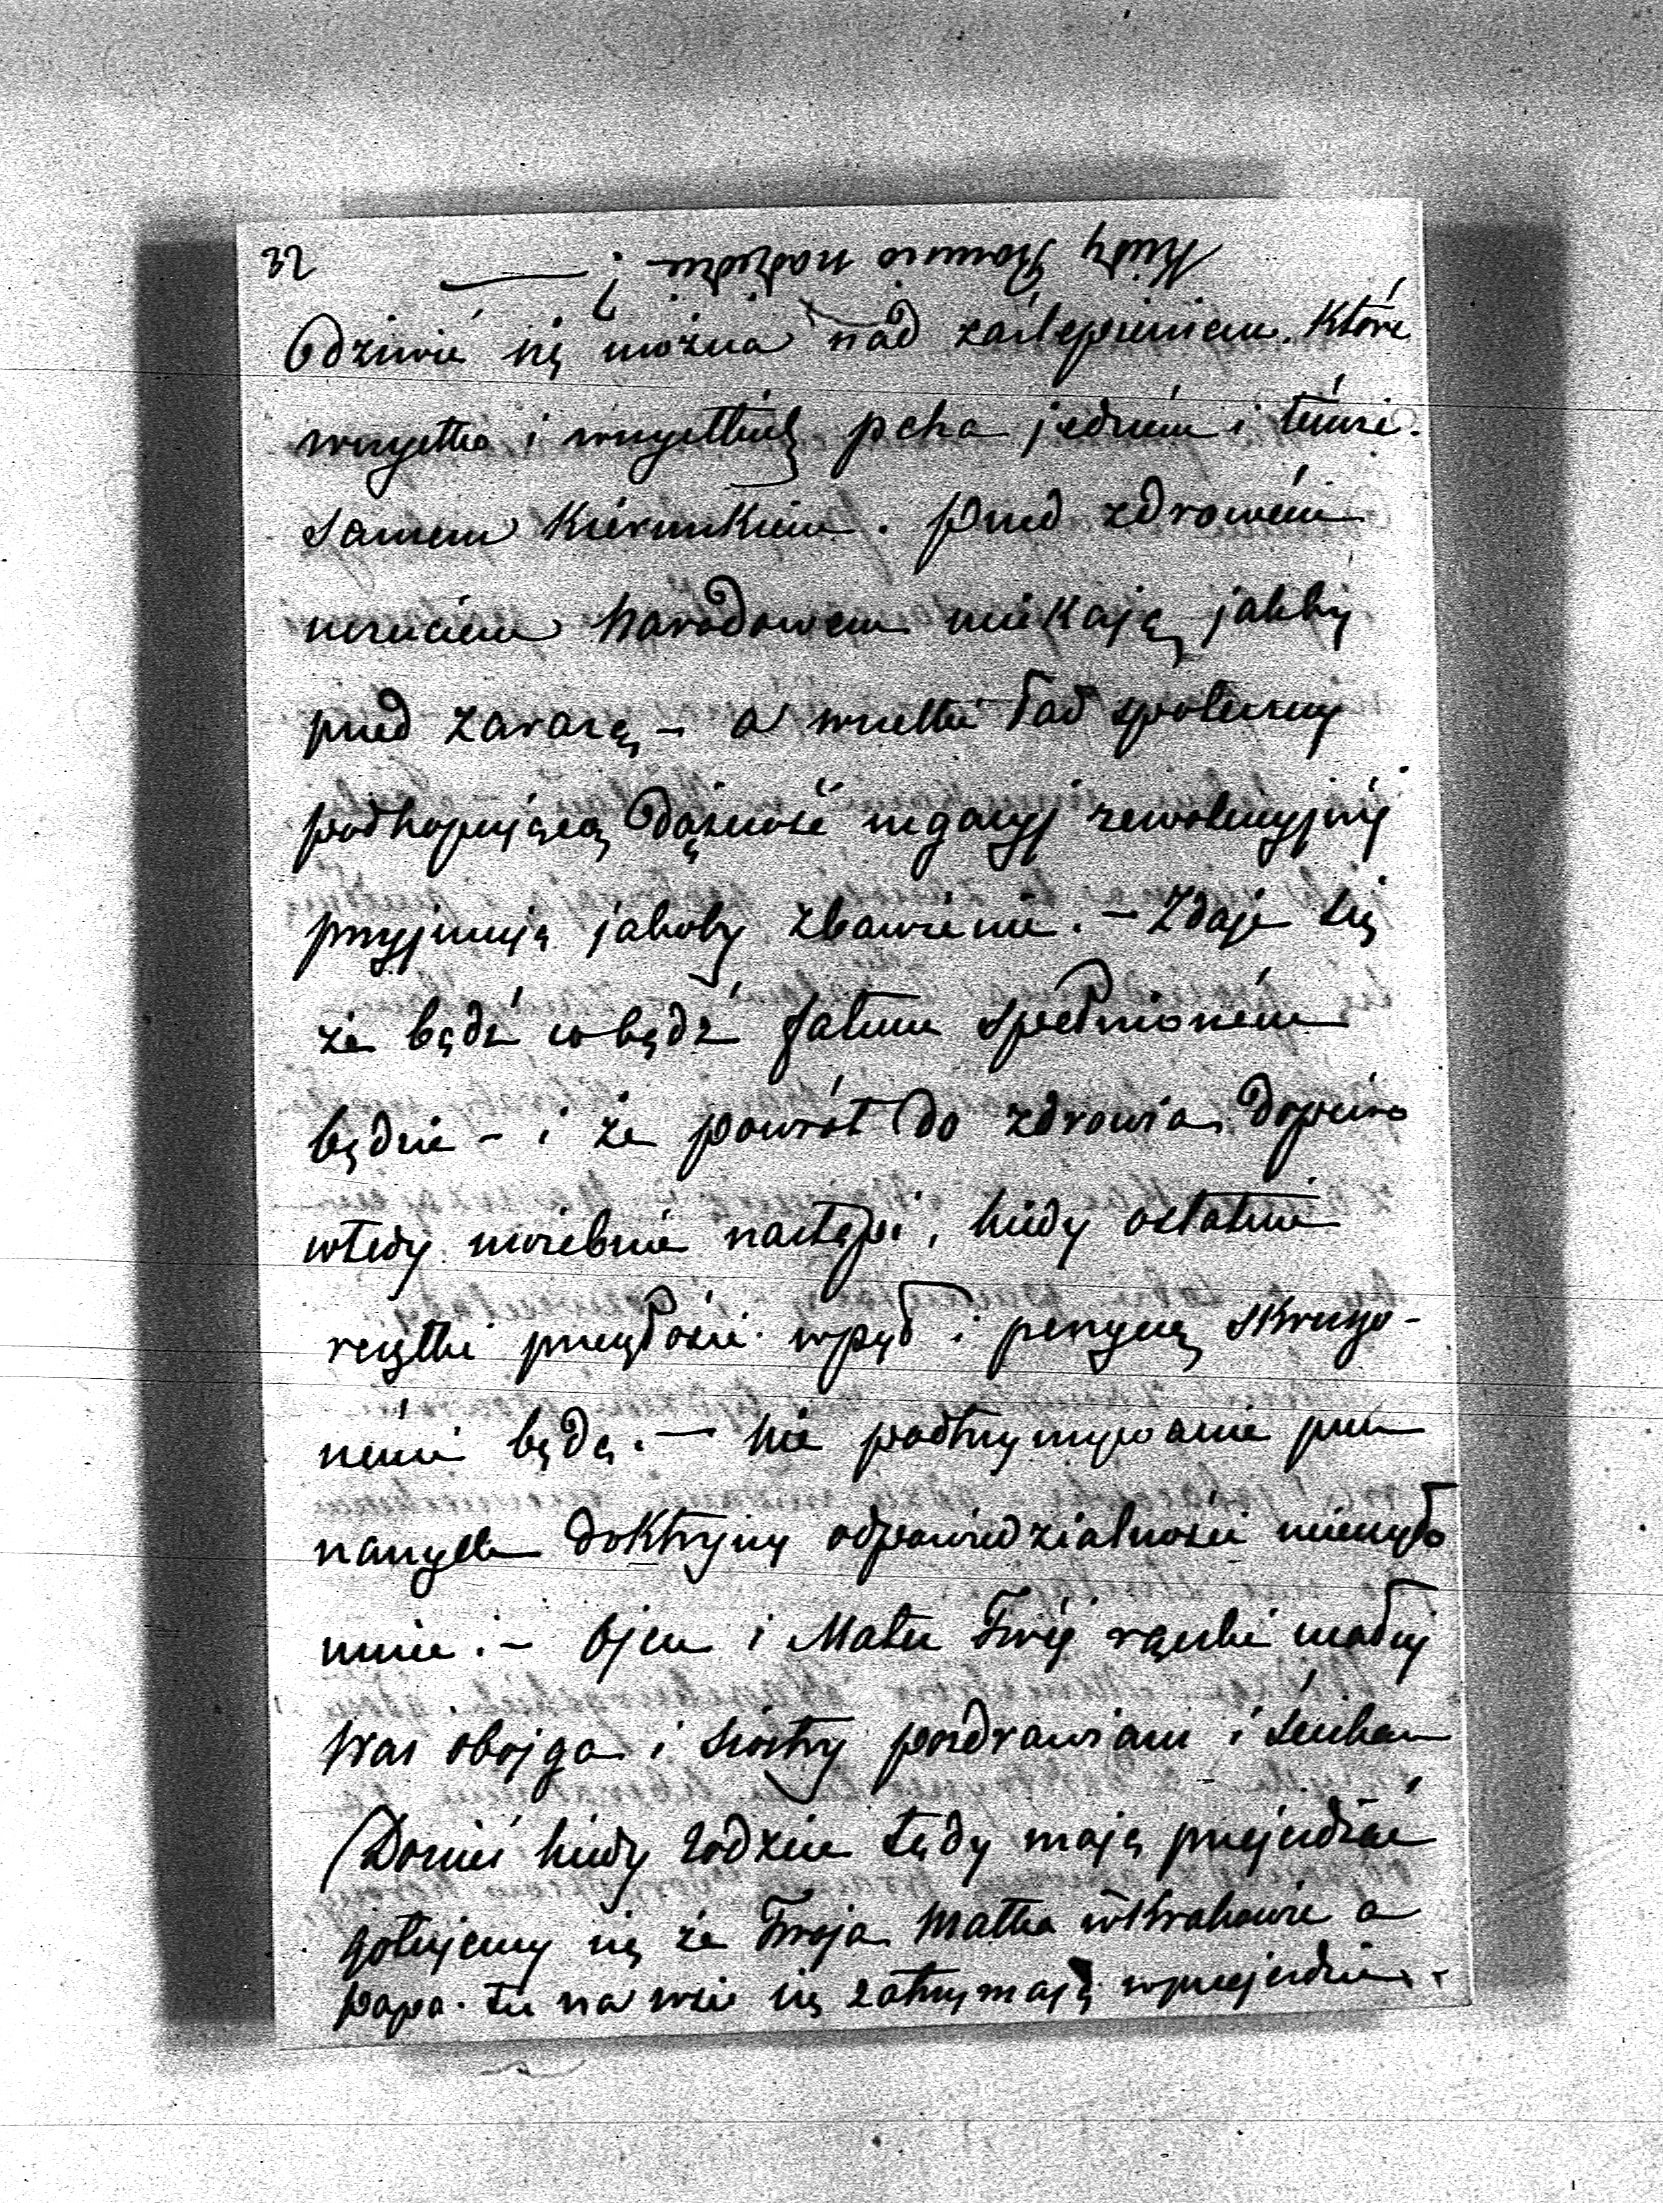 32
Kiedy Romcio nadjedzie? —
Odziwić się można nad zaślepieniem. Które
wszystko i wszystkich pcha jedném i témże.
samem kierunkiem. Przed zdrowém
uczuciem narodowem uciekają jakby
przed zarazą – a wszelki ład społeczny
podkopującą dążność negacyj rewolucyjnéj
przyjmują jakoby zbawienie. – Zdaje się
że bądź co bądź fatum spełnioném
będzie – i że powrót do zdrowia dopiéro
wtedy niezbędnie nastąpi, kiedy ostatnie
resztki przeszłości wpęd i perzynę skruszo-
nemi będą. — nie podtrzymywanie prze
nas doktryny odpowiedzialności
mnie. – Ojcu i Matce Twéj rączki małéj
Was obojga i siostry pozdrawiam i ściskam
(Donieś kiedy rodzice tędy mają przejeżdżać
gotujemy się że Twoja Matka w Krakowie a
papa. tu na wsi się zatrzymają w przejeździe.